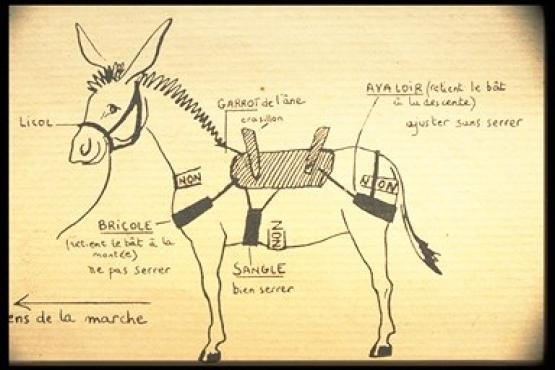 AVALOIR (retient le bât
à la descente)
ajuster sans serrer
GARROT de l'âne
crasillon
LICOL
NON
NON
BRICOLE
(retient le bât à la
montée)
ne pas serrer
NON
SANGLE
bien serrer
ens de la marche